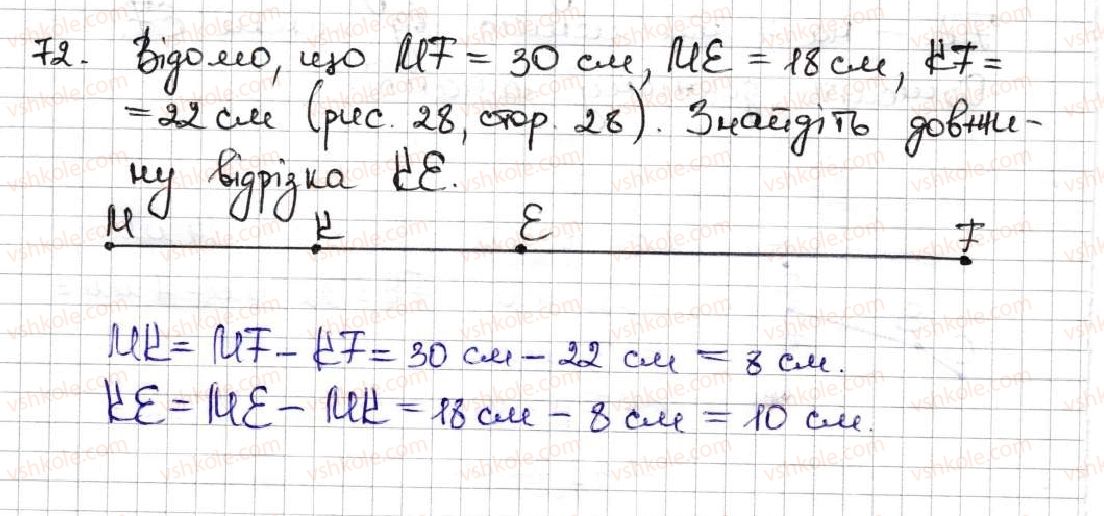 72. Відомо, що MF = 30 см, ME = 18 см, KF =
= 22 см (рис. 28, стор. 28). Знайдіть довжи-
ну відрізка KE.
M K E F
MK = MF - KF = 30 см - 22 см = 8 см.
KE = ME - MK = 18 см - 8 см = 10 см.
vshkole.com